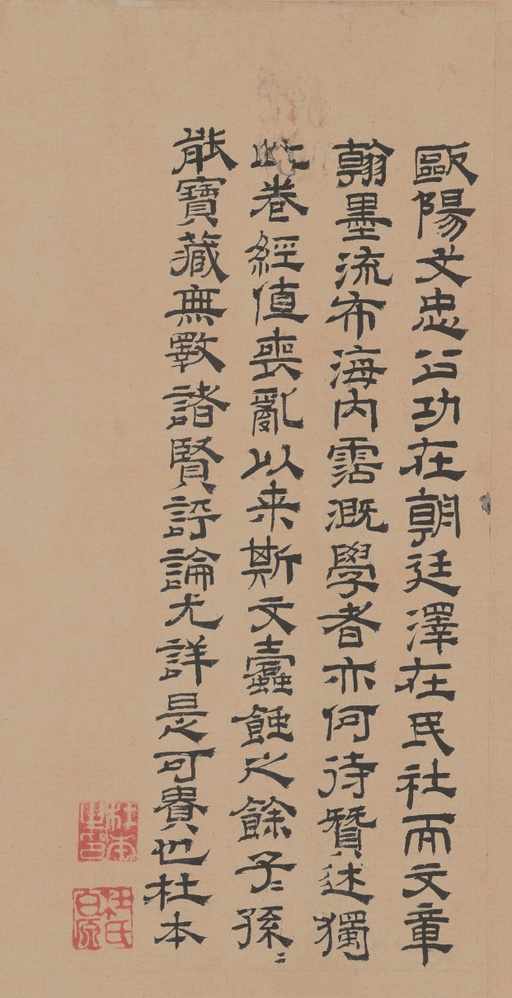 歐陽文忠公功在朝廷澤在民社而文章
翰墨流布海內霑溉學者亦何待贊述獨
此卷經值喪亂以来斯文蠹蝕之餘子〻孫〻
能寶藏無斁諸賢評論尤詳是可貴也杜本
杜本
杜氏